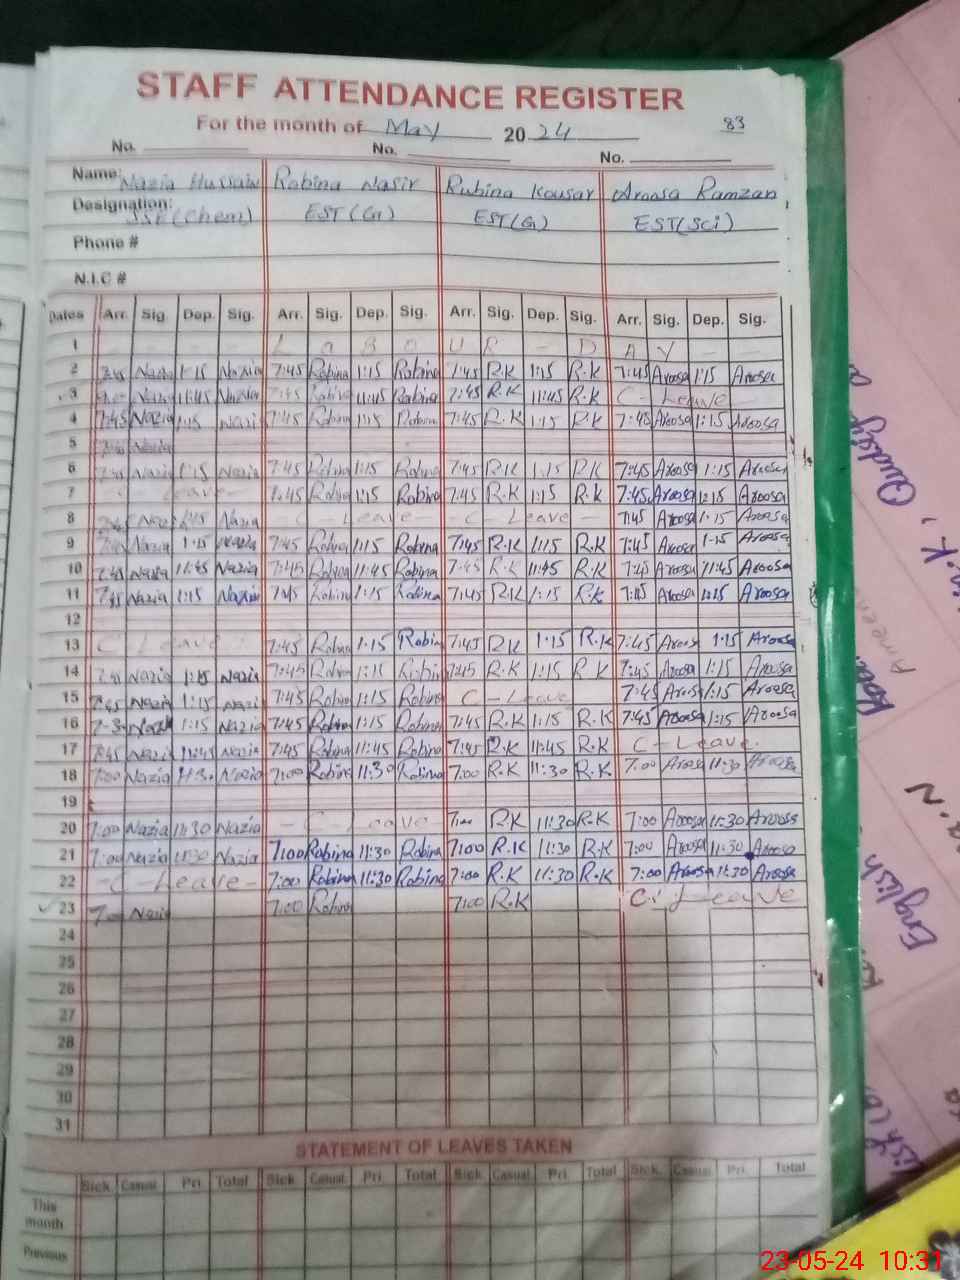 STAFF ATTENDANCE REGISTER
For the month of May 2024 83
No. No. No.
Name: Nazia Hussain Robina Nasir Rubina Kousar Aroosa Ramzan
Designation: SSE(Chem) EST(G) EST(G) EST(Sci)
Phone #
N.I.C #
Dates Arr. Sig. Dep. Sig. Arr. Sig. Dep. Sig. Arr. Sig. Dep. Sig. Arr. Sig. Dep. Sig.
1 L a B O U R - D A Y - -
2 7:45 Nazia 1:15 Nazia 7:45 Robina 1:15 Robina 7:45 R.K 1:15 R.K 7:45 Aroosa 1:15 Aroosa
3 Nazia 11:45 Nazia 7:45 Robina 11:45 Robina 7:45 R.K 11:45 R.K C - Leave -
4 7:45 Nazia 1:15 Nazia 7:45 Robina 1:15 Robina 7:45 R.K 1:15 R.K 7:45 Aroosa 1:15 Aroosa
5 7:45 Nazia
6 7:45 Nazia 1:15 Nazia 7:45 Robina 1:15 Robina 7:45 R.K 1:15 R.K 7:45 Aroosa 1:15 Aroosa
7 Leave 7:45 Robina 1:15 Robina 7:45 R.K 1:15 R.K 7:45 Aroosa Aroosa
8 7:45 Nazia 1:15 Nazia C - Leave - - C - Leave - 7:45 Aroosa 1:15 Aroosa
9 7:45 Nazia 1:15 Nazia 7:45 Robina 1:15 Robina 7:45 R.K 1:15 R.K 7:45 Aroosa 1:15 Aroosa
10 7:45 Nazia 11:45 Nazia 7:45 Robina 11:45 Robina 7:45 R.K 11:45 R.K 7:45 Aroosa 11:45 Aroosa
11 7:45 Nazia 1:15 Nazia 7:45 Robina 1:15 Robina 7:45 R.K 1:15 R.K Aroosa Aroosa
12
13 C Leave 7:45 Robina 1:15 Robina 7:45 R.K 1:15 R.K 7:45 Aroosa 1:15 Aroosa
14 7:45 Nazia 1:15 Nazia 7:45 Robina 1:15 Robina 7:45 R.K 1:15 R K 7:45 Aroosa 1:15 Aroosa
15 7:45 Nazia 1:15 Nazia 7:45 Robina 1:15 Robina C - Leave 7:45 Aroosa 1:15 Aroosa
16 Nazia 1:15 Nazia 7:45 Robina 1:15 Robina 7:45 R.K 1:15 R.K 7:45 Aroosa 1:15 Aroosa
17 7:45 Nazia 11:45 Nazia 7:45 Robina 11:45 Robina 7:45 R.K 11:45 R.K C - Leave
18 7:00 Nazia 11:30 Nazia 7:00 Robina 11:30 Robina 7:00 R.K 11:30 R.K 7:00 Aroosa 11:30 Aroosa
19
20 7:00 Nazia 11:30 Nazia - C - Leave - 7:00 R.K 11:30 R.K 7:00 Aroosa 11:30 Aroosa
21 7:00 Nazia 11:30 Nazia 7:00 Robina 11:30 Robina 7:00 R.K 11:30 R.K 7:00 Aroosa 11:30 Aroosa
22 - C - Leave - 7:00 Robina 11:30 Robina 7:00 R.K 11:30 R.K 7:00 Aroosa 11:30 Aroosa
23 7:00 Nazia 7:00 Robina 7:00 R.K Leave
24
25
26
27
28
29
30
31
STATEMENT OF LEAVES TAKEN
Sick Casual Pri Total Sick Casual Pri. Total Sick Casual Pri. Total Sick. Casual Pri. Total
This month
Previous
English
23-05-24 10:31